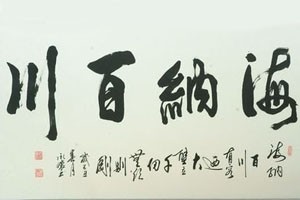 海納百川
海納百川有容迺大壁立千仞無欲則剛